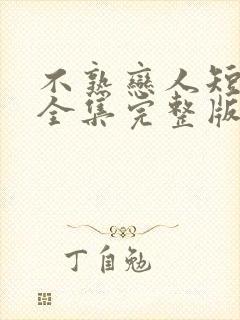 不熟戀人短
全集完整版
丁自勉